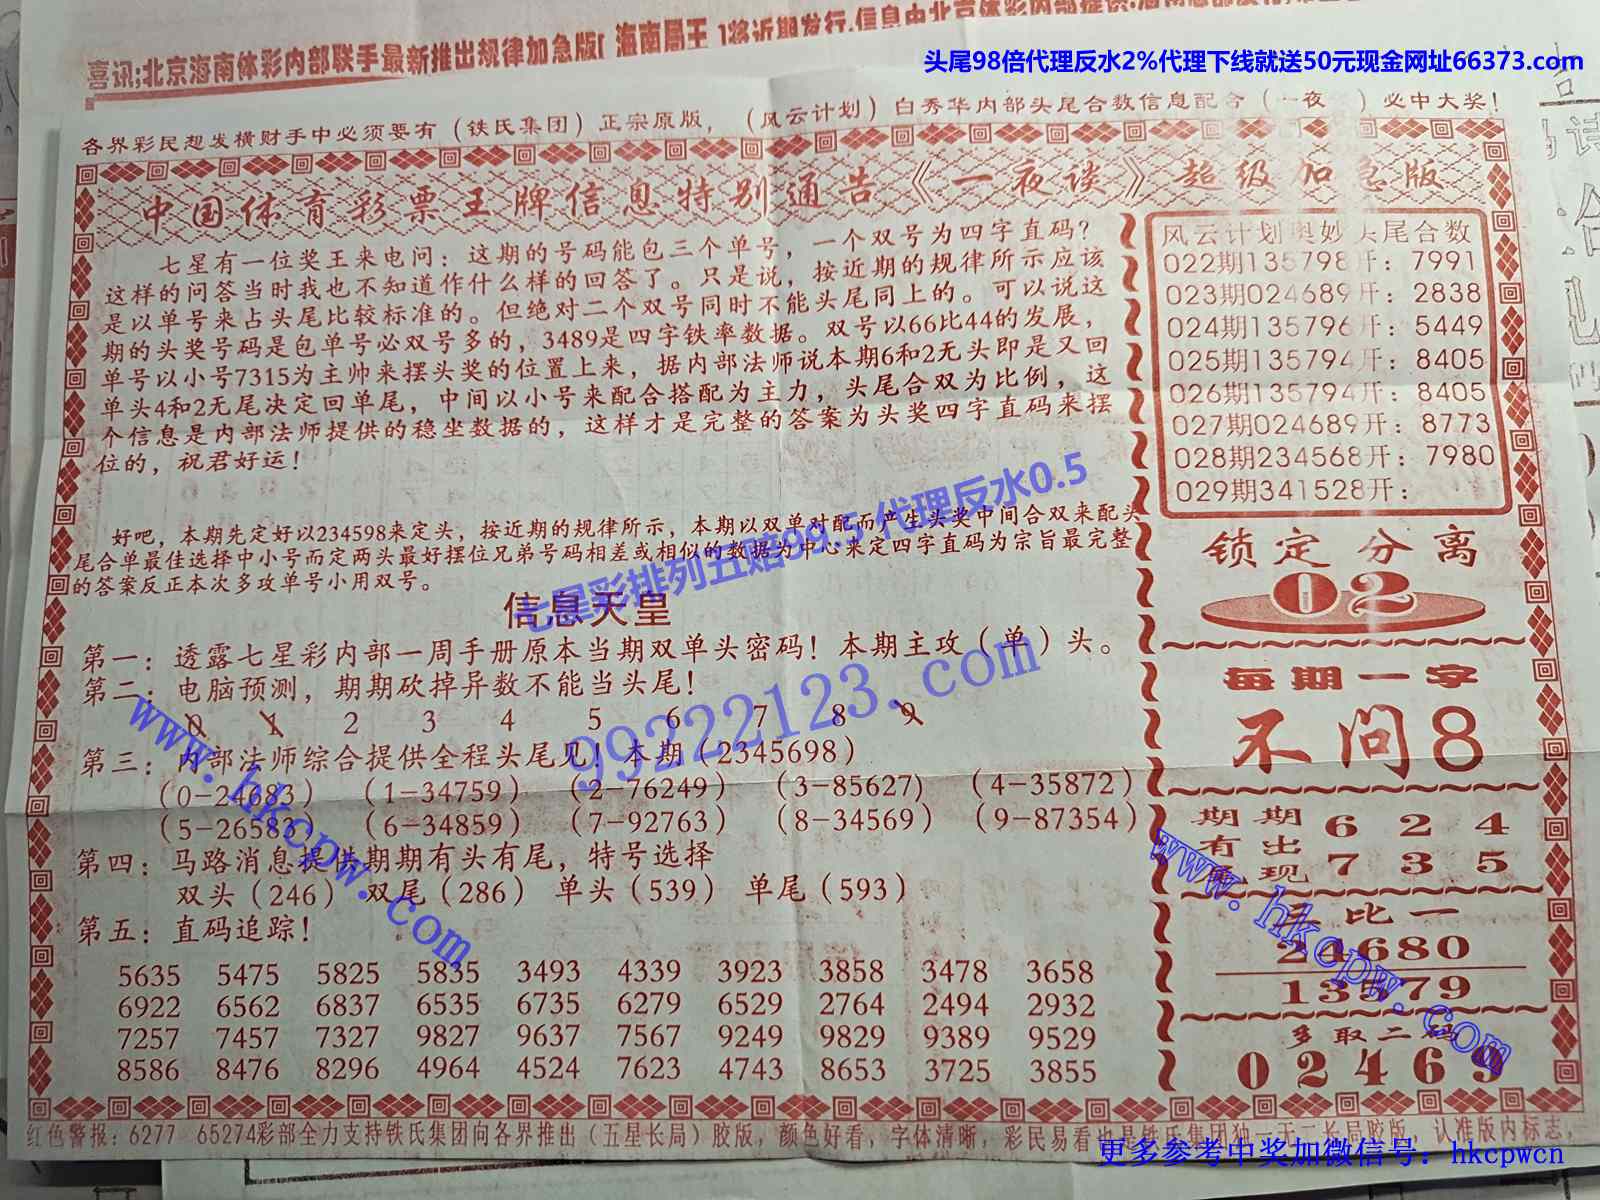 喜讯;北京海南体彩内部联手最新推出规律加急版[海南局王]将近期发行,信息由北京体彩内部提供
头尾98倍代理反水2%代理下线就送50元现金网址66373.com
各界彩民想发横财手中必须要有(铁氏集团)正宗原版,(风云计划)白秀华内部头尾合数信息配合(一夜 )必中大奖!
中国体育彩票王牌信息特别通告《一夜谈》超级加急版
七星有一位奖王来电问:这期的号码能包三个单号,一个双号为四字直码?
这样的问答当时我也不知道作什么样的回答了。只是说,按近期的规律所示应该
是以单号来占头尾比较标准的。但绝对二个双号同时不能头尾同上的。可以说这
期的头奖号码是包单号必双号多的,3489是四字铁率数据。双号以66比44的发展,
单号以小号7315为主帅来摆头奖的位置上来,据内部法师说本期6和2无头即是又回
单头4和2无尾决定回单尾,中间以小号来配合搭配为主力,头尾合双为比例,这
个信息是内部法师提供的稳坐数据的,这样才是完整的答案为头奖四字直码来摆
位的,祝君好运!
好吧,本期先定好以234598来定头,按近期的规律所示,本期以双单对配而产生头奖中间合双来配头
尾合单最佳选择中小号而定两头最好摆位兄弟号码相差或相似的数据为中心来定四字直码为宗旨最完整
的答案反正本次多攻单号小用双号。
七星彩排列五赔99.5 代理反水0.5
信息天皇
第一:透露七星彩内部一周手册原本当期双单头密码!本期主攻(单)头。
第二:电脑预测,期期砍掉异数不能当头尾!
0 1 2 3 4 5 6 7 8 9
第三:内部法师综合提供全程头尾见!本期(2345698)
(0-24683) (1-34759) (2-76249) (3-85627) (4-35872)
(5-26583) (6-34859) (7-92763) (8-34569) (9-87354)
第四:马路消息提供期期有头有尾,特号选择
双头(246) 双尾(286) 单头(539) 单尾(593)
第五:直码追踪!
5635 5475 5825 5835 3493 4339 3923 3858 3478 3658
6922 6562 6837 6535 6735 6279 6529 2764 2494 2932
7257 7457 7327 9827 9637 7567 9249 9829 9389 9529
8586 8476 8296 4964 4524 7623 4743 8653 3725 3855
99222123.com
www.hkcpw.com
风云计划奥妙头尾合数
022期135798开:7991
023期024689开:2838
024期135796开:5449
025期135794开:8405
026期135794开:8405
027期024689开:8773
028期234568开:7980
029期341528开:
锁定分离
02
每期一字
不问8
期期 6 2 4
有出
现 7 3 5
三比一
24680
13579
多取二码
02469
www.hkcpw.com
红色警报:6277 65274彩部全力支持铁氏集团向各界推出(五星长局)胶版,颜色好看,字体清晰,彩民易看也是铁氏集团独一无二长局胶版,认准版内标志,
更多参考中奖加微信号:hkcpwcn